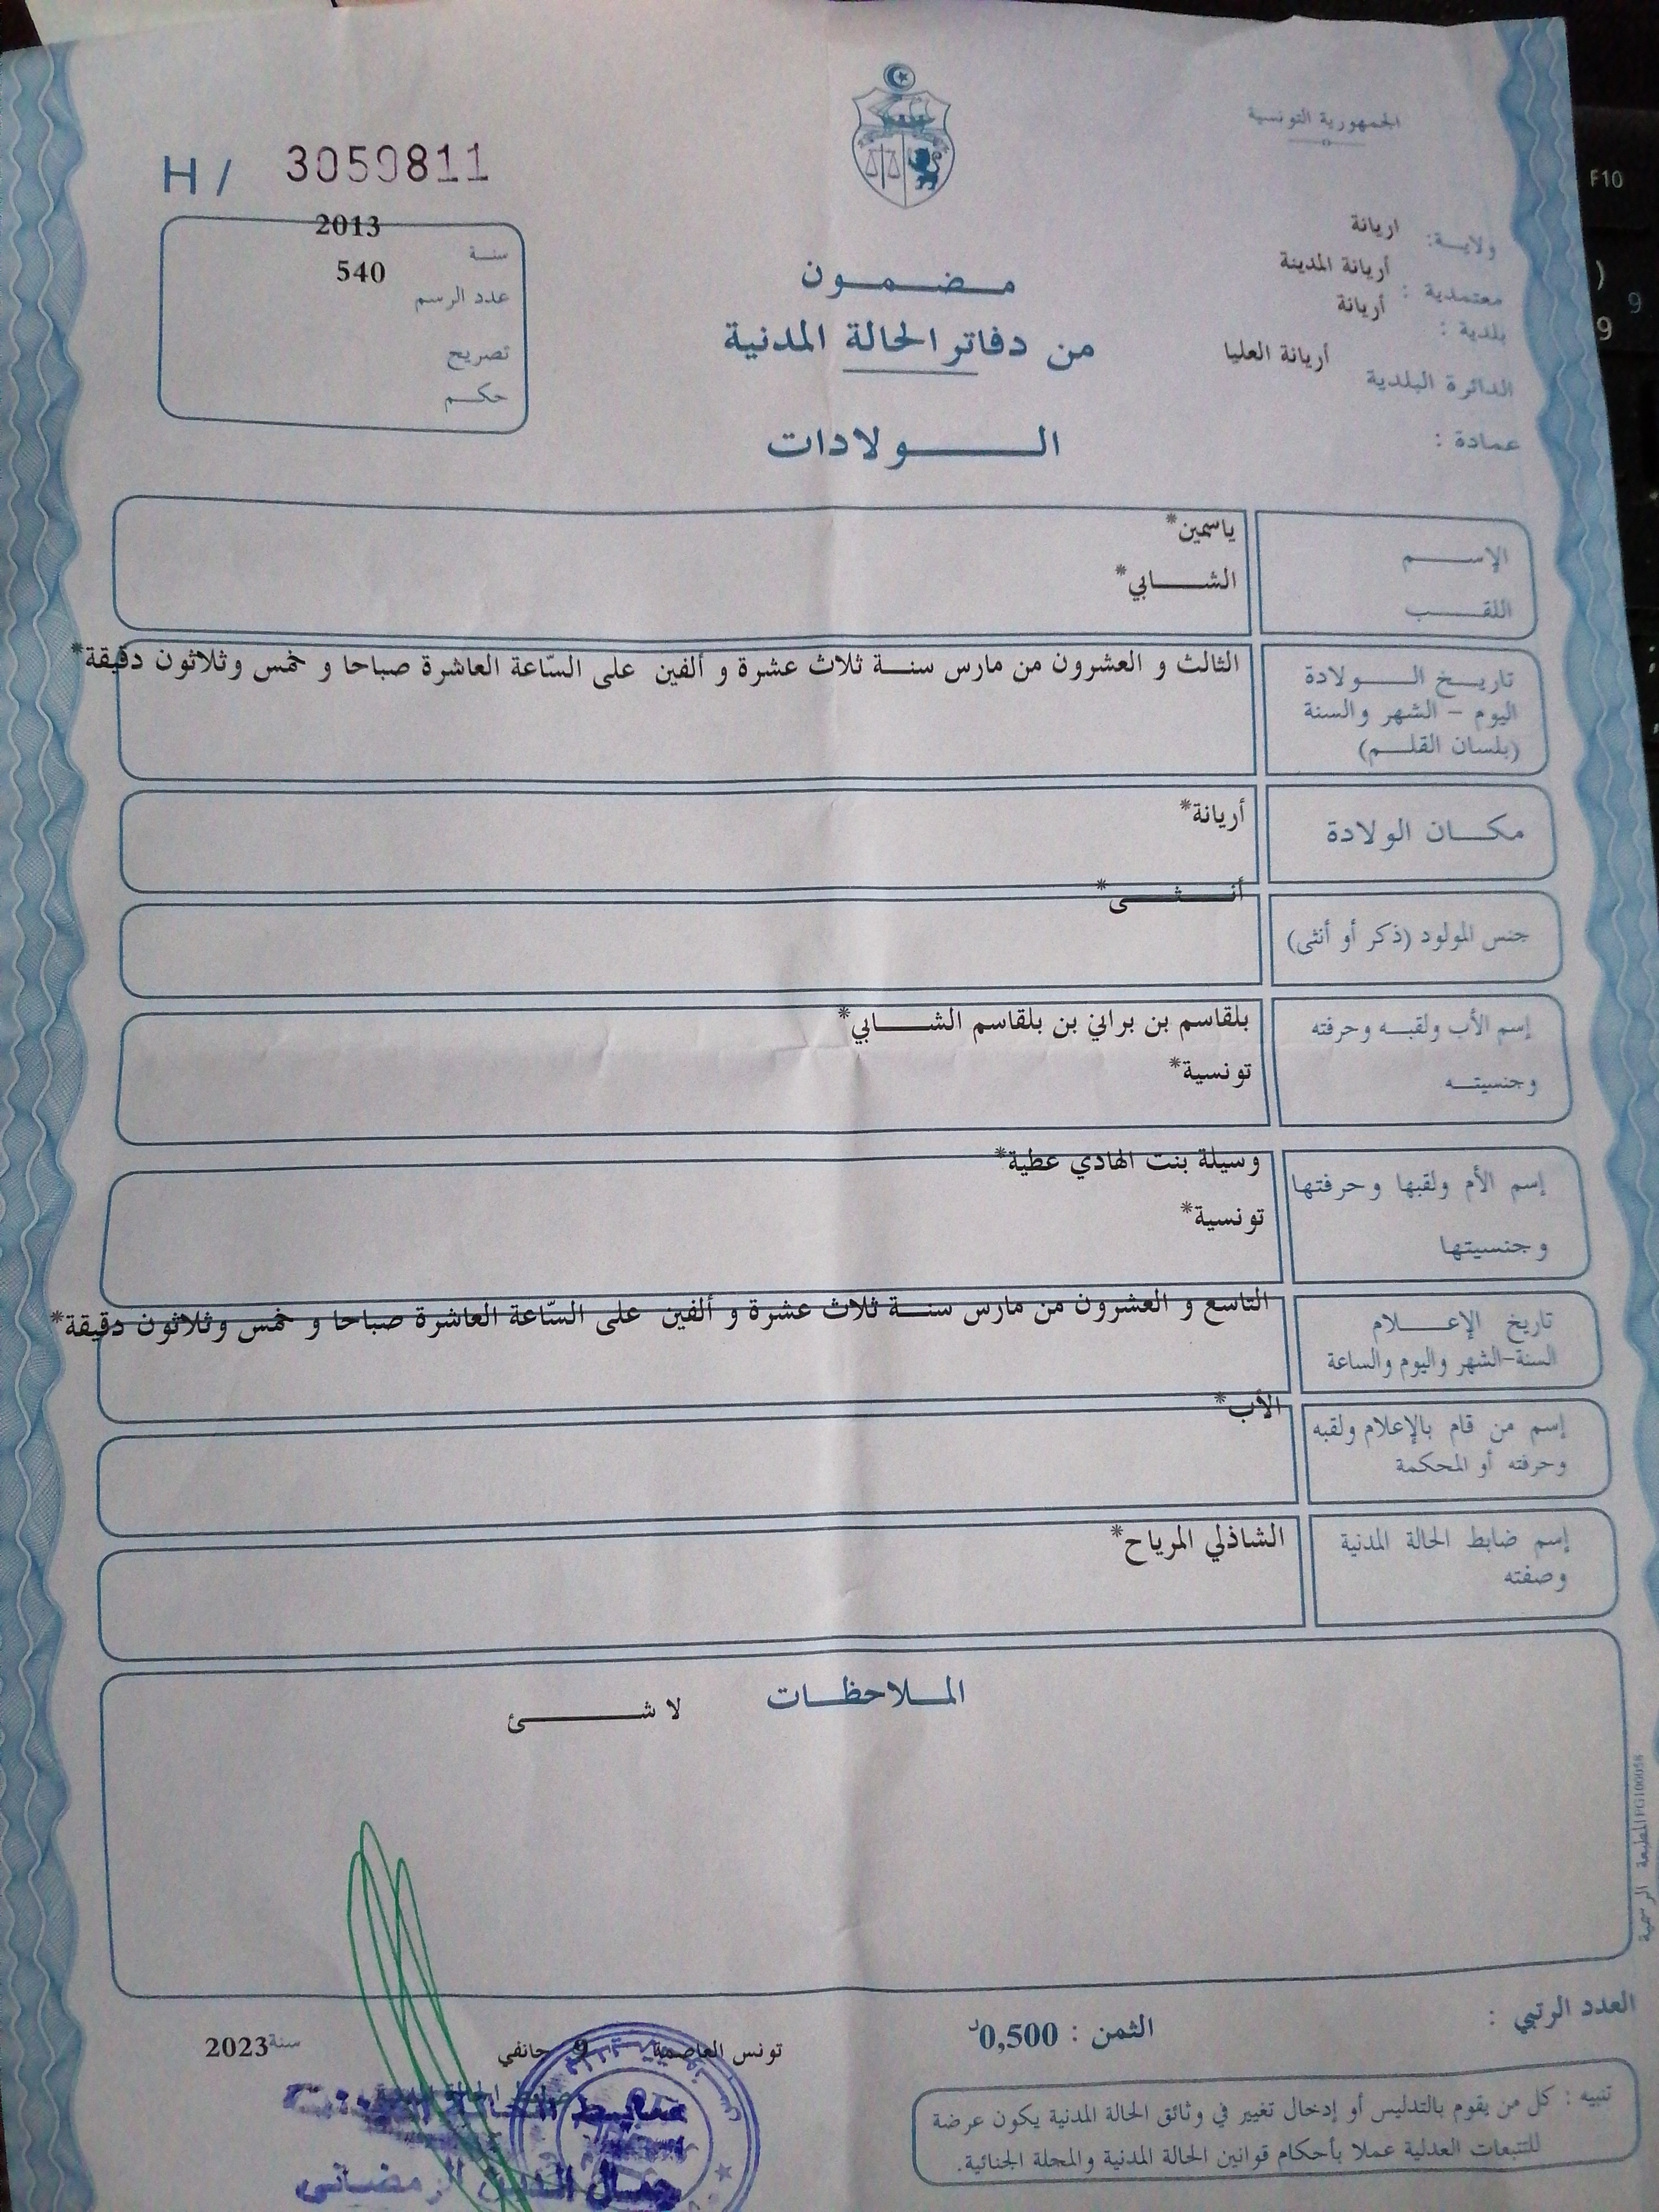 الجمهورية التونسية
H / 3059811
ولايـــة: اريانة
معتمدية : أريانة المدينة
بلدية : أريانة
الدائرة البلدية أريانة العليا
عمادة :
سنــة 2013
عدد الرسم 540
تصريح
حكــم
مــضــمــون
من دفاتر الحالة المدنية
الــــولادات
الإســــم ياسمين*
اللقـــب الشـــــابي*
تاريــخ الـــــولادة
اليوم - الشهر والسنة
(بلسان القلـــم)
الثالث و العشرون من مارس سنـــة ثلاث عشرة و ألفين على السّاعة العاشرة صباحا و خمس وثلاثون دقيقة*
مكـــان الولادة أريانة*
جنس المولود (ذكر أو أنثى) أنـــــثـــــى*
إسم الأب ولقبــه وحرفته
بلقاسم بن براني بن بلقاسم الشـــــابي*
وجنسيتـــه تونسية*
إسم الأم ولقبها وحرفتها وسيلة بنت الهادي عطية*
وجنسيتها تونسية*
تاريخ الإعـــــلام
السنة-الشهر واليوم والساعة
التاسع و العشرون من مارس سنـــة ثلاث عشرة و ألفين على السّاعة العاشرة صباحا و خمس وثلاثون دقيقة*
إسم من قام بالإعلام ولقبه
وحرفته أو المحكمة
الأب*
إسم ضابط الحالة المدنية
وصفته
الشاذلي المرياح*
المــلاحظــات
لا شـــــــئ
المطبعة الرسمية
العدد الرتبي :
الثمن : 0,500د
تونس العاصمة 9 جانفي سنة 2023
ضابط الحالة المدنية
جمال الدين الرمضاني
تنبيه : كل من يقوم بالتدليس أو إدخال تغيير في وثائق الحالة المدنية يكون عرضة
للتتبعات العدلية عملا بأحكام قوانين الحالة المدنية والمجلة الجنائية.
F10
)
9
9